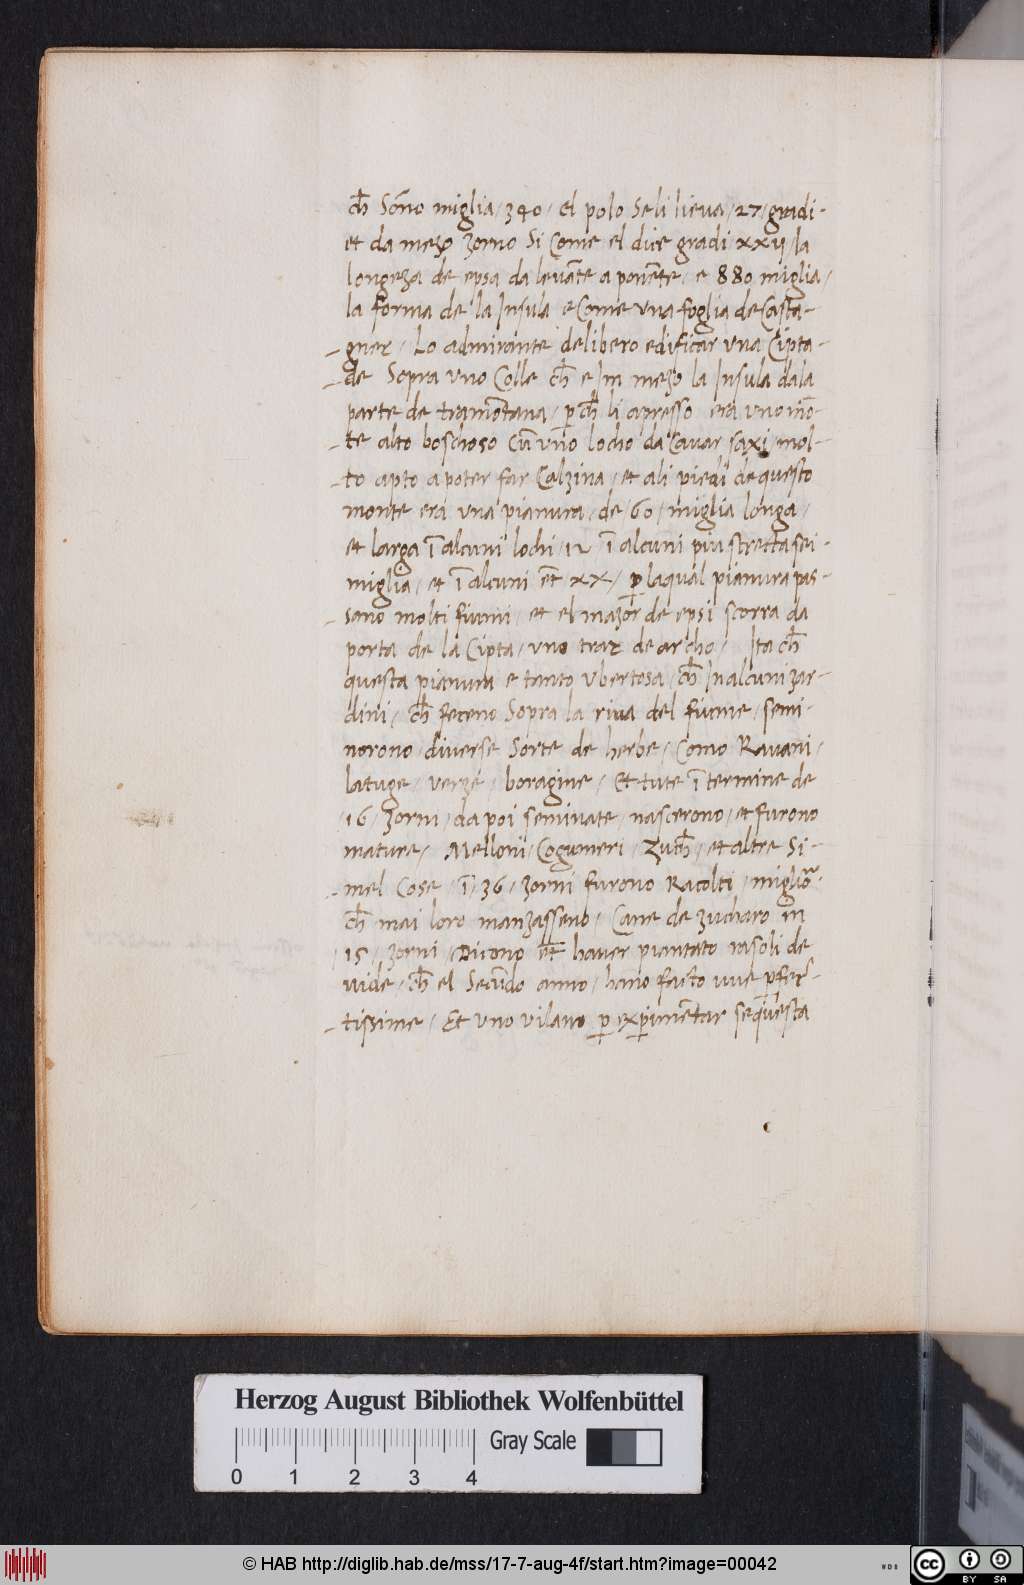 ch̄ Sōno miglia / 340 / el polo Se li lieva / 27 / gradi -
et da mezo zorno Si Come el dice gradi xxij / la
longeza de epsa da levāte a ponēte / e 880 miglia /
la forma de la Insula e Come una foglia de Casta-
- gner / Lo admirante delibero edificar una Cipta-
- de Sopra uno Colle ch̄ e In mezo la Insula dala
parte de tramōtana / p̱ch̄ li apresso era uno mō-
- te alto boschoso Cū vno locho da Cavar saxi / mol-
- to apto a poter far Calzina / et ali piedi de questo
monte era una pianura / de / 60 / miglia longa /
et larga ī alcuni lochi / 12 / ī alcuni piu stretta sei -
miglia / et ī alcuni et̄ xx / p̱ laqual pianura pas-
- sano molti fiumi / et el mazor de epsi scorra da
porta de la Cipta / uno traz de archo / Ita ch̄
questa pianura e tanto ubertosa / ch̄ In alcuni zar-
dini / ch̄ feceno Sopra la riva del fiume / semi-
norono diverse Sorte de herbe / Como Ravani /
latuge / verze / boragine / Et tute ī termine de
/ 16 / zorni / da poi seminate / nascerono / et furono
mature / Melloni / Cogumeri / Zuch̄ / et altre Si-
- mel Cose / ī / 36 / zorni furono Racolti / miglior
ch̄ mai loro manzasseno / Cane de zucharo in
/ 15 / zorni / Dicono et̄ haver piantato rasoli de
vide / ch̄ el Secūdo anno / hano facto uve p̱fec-
- tissime / Et uno vilano p̱ exp̱imētar se questa
Herzog August Bibliothek Wolfenbüttel
Gray Scale
0 1 2 3 4
© HAB http://diglib.hab.de/mss/17-7-aug-4f/start.htm?image=00042
WDB
cc BY SA